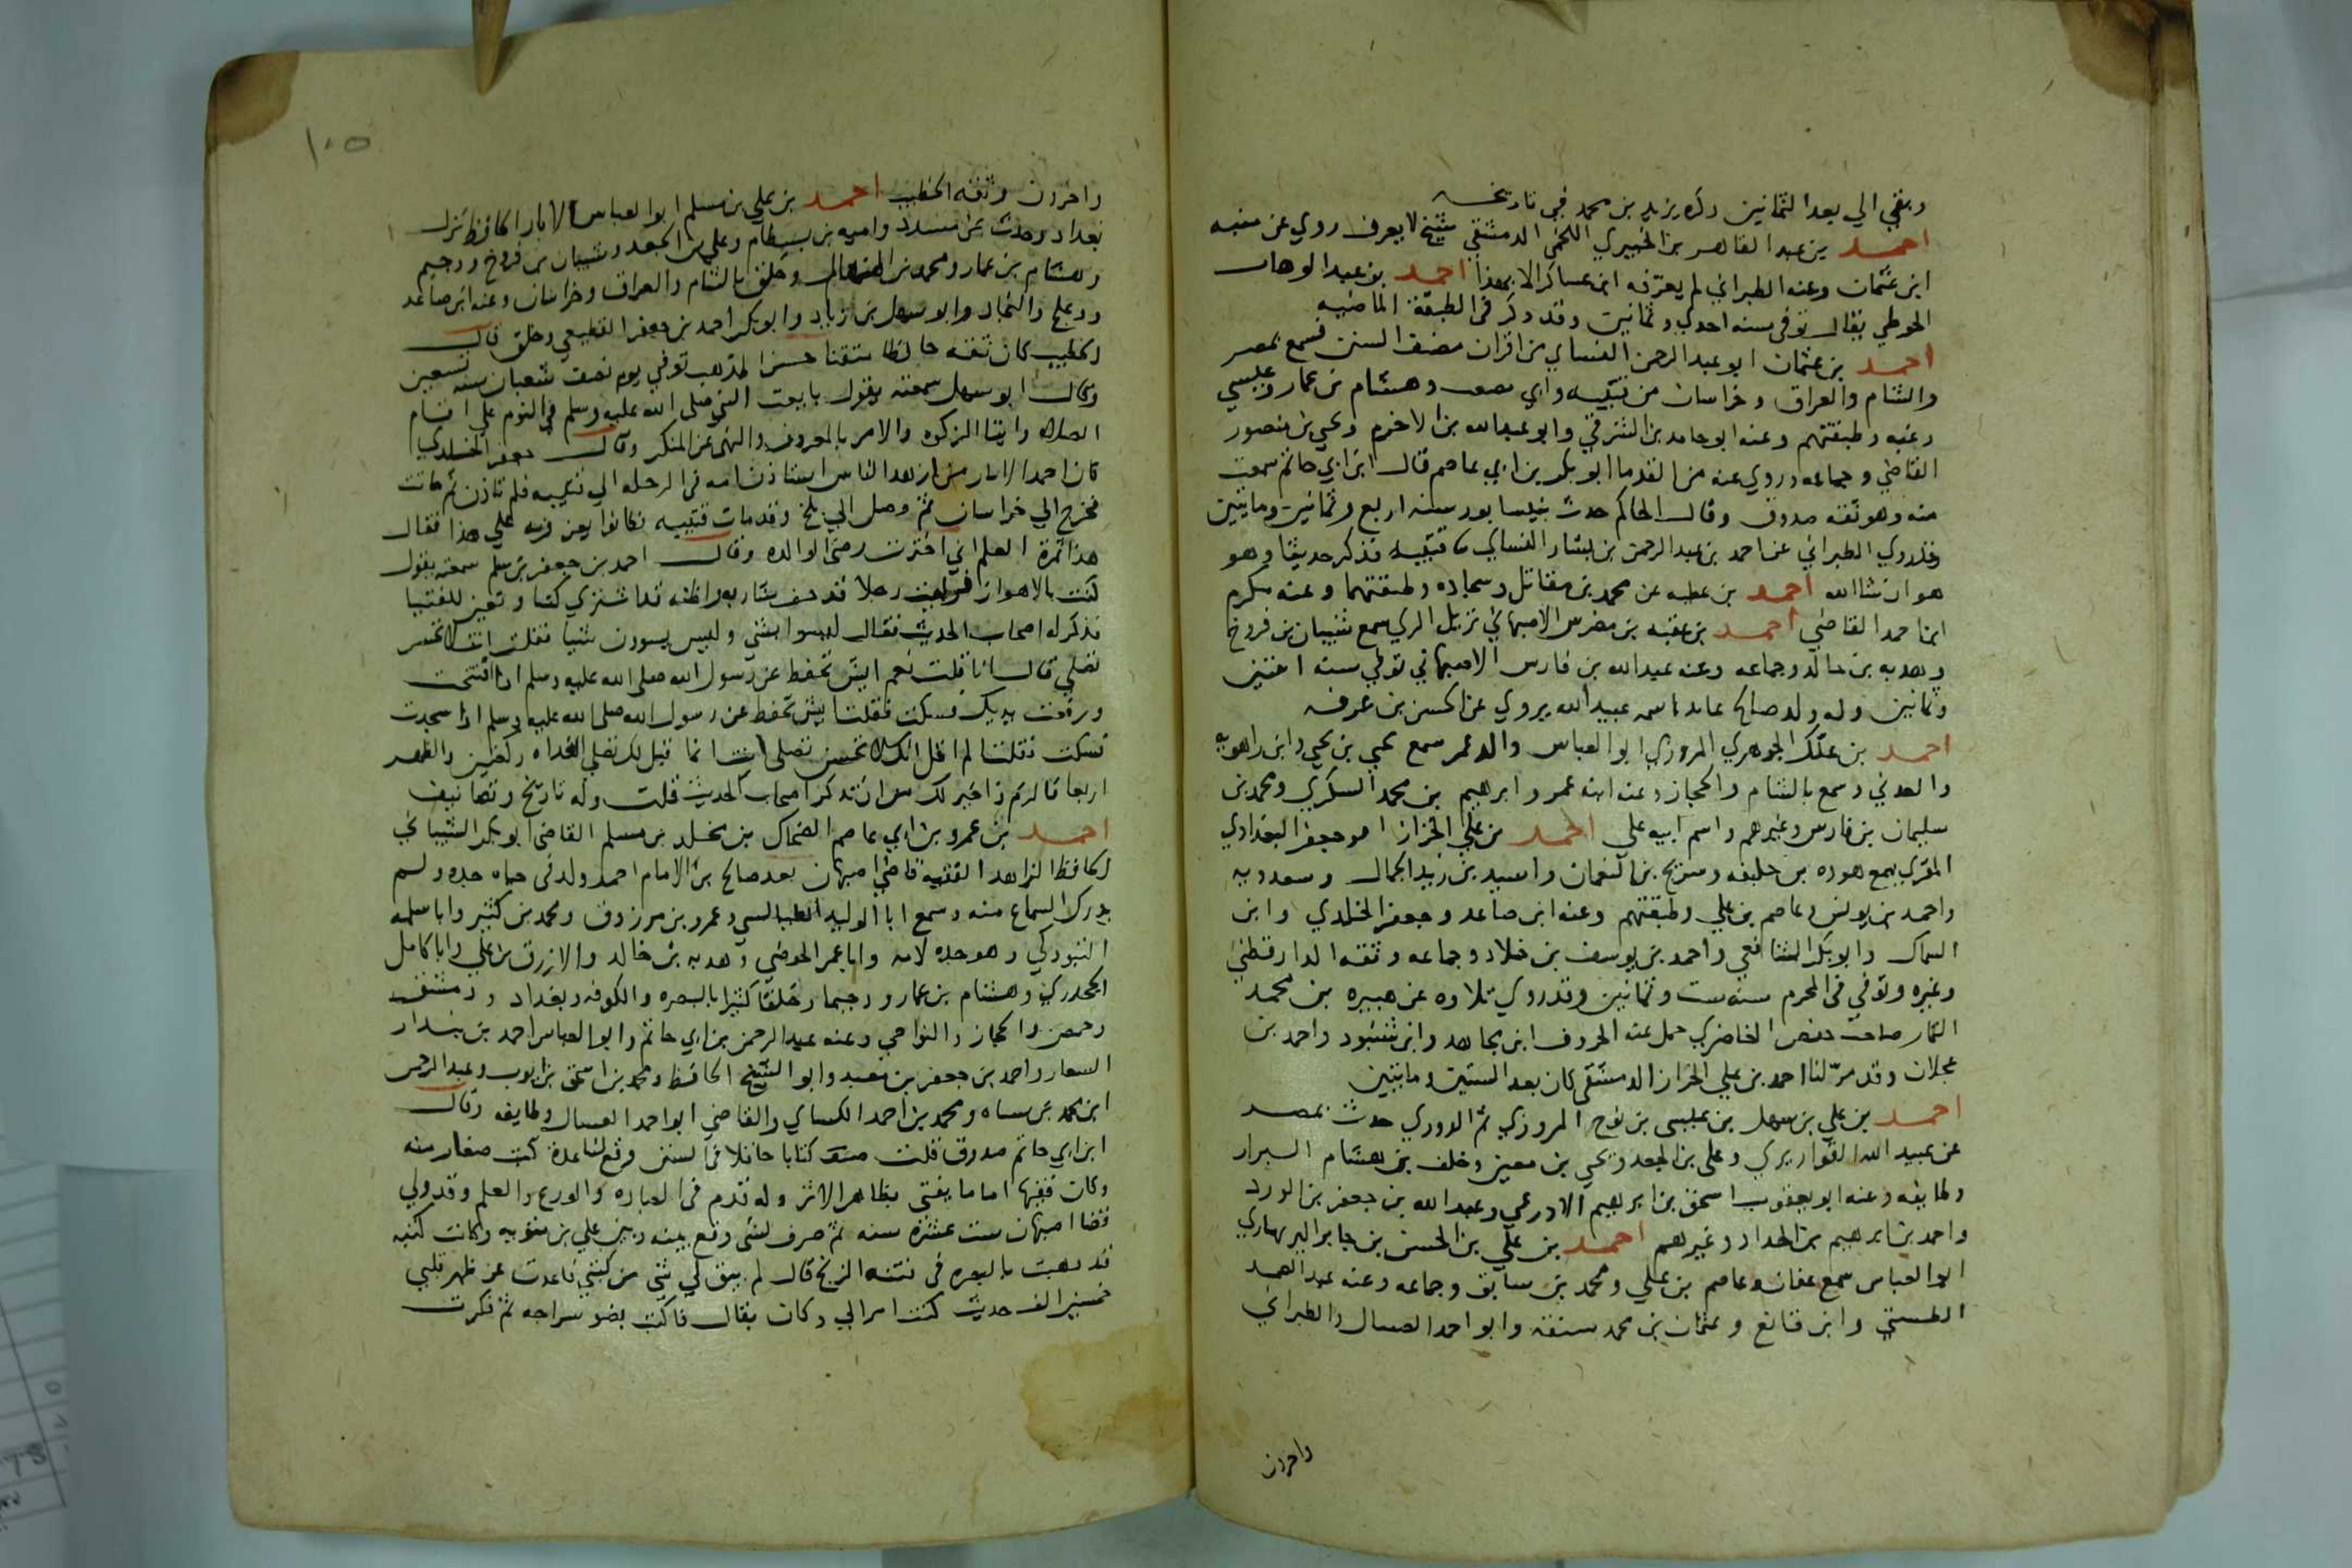 وبقي الي بعد الثمانين ذكره يزيد بن محمد في تاريخه
احمد بن عبد القاهر بن الخيبري اللخمي الدمشقي شيخ لا يعرف روي عن منبه
ابن عثمان وعنه الطبراني لم يعرفه ابن عساكر الا بهذا احمد بن عبد الوهاب
الحوطي يقال توفي سنه احدي وثمانين وقد ذكر في الطبقة الماضيه
احمد بن عثمان ابو عبد الرحمن النسائي من اقران مصنف السنن سمع بمصر
والشام والعراق وخراسان من قتيبه وابي مصعب وهشام بن عمار وعيسي
وغيه وطبقتهم وعنه ابو حامد بن الشرقي وابو عبدالله بن الاخرم ويحيي بن منصور
القاضي وجماعه وروي عنه من القدما ابو بكر بن ابي عاصم قال ابن ابي حاتم سمعت
منه وهو ثقه صدوق وقال الحاكم حدث بنيسابور سنه اربع وثمانين ومايتين
وقد روي الطبراني عن احمد بن عبد الرحمن بن بشار النسائي ثنا قتيبه فذكر حديثا وهو
هو ان شا الله احمد بن عطيه عن محمد بن مقاتل وسجاده وطبقتهما وعنه مكرم
ابن احمد القاضي احمد بن عقبه بن مضرس الاصبهاني نزيل الري سمع شيبان بن فروخ
وهدبه بن خالد وجماعه وعنه عبدالله بن فارس الاصبهاني توفي سنه اثنتين
وثمانين وله ولد صالح عابد اسمه عبيد الله يروي عن الحسن بن عرفه
احمد بن علك الجوهري المروزي ابو العباس والد عمر سمع يحيي بن يحيي وابن راهويه
والعدني وسمع بالشام والحجاز وعنه ابنه عمر وابرهيم بن محمد السكري ومحمد بن
سليمان بن فارس وغيرهم واسم ابيه علي احمد بن علي الخزاز ابو جعفر البغدادي
المقري سمع هوذه بن خليفه وسريج بن النعمان واسيد بن زيد الجمال وسعدويه
واحمد بن يونس وعاصم بن علي وطبقتهم وعنه ابن صاعد وجعفر الخلدي وابن
السماك وابو بكر الشافعي واحمد بن يوسف بن خلاد وجماعه وثقه الدارقطني
وغيره وتوفي في المحرم سنه ست وثمانين وقد روي تلاوه عن هبيره بن محمد
التمار صاحب حفص الخاضري حمل عنه الحروف ابن مجاهد وابن شنبود واحمد بن
عجلان وقد مر لنا احمد بن علي الخزاز الدمشقي كان بعد الستين ومايتين
احمد بن علي بن سهل بن عيسى بن نوح المروزي ثم الدوري حدث بمصر
عن عبيد الله القواريري وعلي بن الجعد ويحيي بن معين وخلف بن هشام البزار
وطايفه وعنه ابو يعقوب اسحق بن ابرهيم الاذرعي وعبد الله بن جعفر بن الورد
واحمد بن ابرهيم بن الحداد وغيرهم احمد بن علي بن الحسن بن جابر البربهاري
ابو العباس سمع عفان وعاصم بن علي ومحمد بن سابق وجماعه وعنه عبد الصمد
الطستي وابن قانع وعثمان بن محمد سنقه وابو احمد العسال والطبراني
واخرون
١٠٥
واخرون وثقه الخطيب احمد بن علي بن مسلم ابو العباس الابار الحافظ نزل
بغداد وحدث عن مسدد واميه بن بسطام وعلي بن الجعد وشيبان بن فروخ ودحيم
وهشام بن عمار ومحمد بن المنهال وخلق بالشام والعراق وخراسان وعنه ابن صاعد
ودعلج والنجاد وابو سهل بن زياد وابو بكر احمد بن جعفر القطيعي وخلق قال
الخطيب كان ثقه حافظا متقنا حسن المذهب توفي يوم نصف شعبان سنه تسعين
وقال ابو سهل سمعته يقول بايعت النبي صلى الله عليه وسلم في النوم علي اقام
الصلاه وايتا الزكوه والامر بالمعروف والنهى عن المنكر وقال جعفر الخلدي
كان احمد الابار من ازهد الناس استاذن امه في الرحله الي قتيبه فلم تاذن ثم ماتت
فخرج الي خراسان ثم وصل الي بلخ وقد مات قتيبه فكانوا يعزونه علي هذا فقال
هذا ثمرة العلم اني اخترت رضي الوالده وقال احمد بن جعفر بن سلم سمعته يقول
كنت بالاهواز فرايت رجلا قد حف شاربه واظنه قد اشتري كتبا وتعين للفتيا
فذكر له اصحاب الحديث فقال ليسوا بشي وليس يسوون شيا فقلت انت لا تحسن
تصلي قال انا قلت نعم ايش تحفظ عن رسول الله صلى الله عليه وسلم اذا افتتحت
ورفعت يديك فسكت فقلت ايش تحفظ عن رسول الله صلى الله عليه وسلم اذا سجدت
فسكت فقلت الم اقل انك لا تحسن تصلي انت انما قيل لك تصلي الغداه ركعتين والظهر
اربعا فالزم ذا خير لك من ان تذكر اصحاب الحديث قلت وله تاريخ وتصانيف
احمد بن عمرو بن ابي عاصم الضحاك بن مخلد بن مسلم القاضي ابو بكر الشيباني
الحافظ الزاهد الفقيه قاضي اصبهان بعد صالح بن الامام احمد ولد في حياه جده ولم
يدرك السماع منه وسمع ابا الوليد الطيالسي وعمرو بن مرزوق ومحمد بن كثير وابا سلمه
التبوذكي وهو جده لامه وابا عمر الحوضي وهدبه بن خالد والازرق بن علي وابا كامل
الجحدري وهشام بن عمار ودحيما وخلقا كثيرا بالبصره والكوفه وبغداد ودمشق
وحمص والحجاز والنواحي وعنه عبد الرحمن بن ابي حاتم وابو العباس احمد بن بندار
السعار واحمد بن جعفر بن معبد وابو الشيخ الحافظ ومحمد بن اسحق بن ايوب وعبد الرحمن
ابن محمد بن سياه ومحمد بن احمد الكسائي والقاضي ابو احمد العسال وطايفه وقال
ابن ابي حاتم صدوق قلت صنف كتابا حافلا في السنن وقع لنا عدة كتب صغار منه
وكان فقيها اماما يفتي بظاهر الاثر وله قدم في العباده والورع والعلم وقد ولي
قضا اصبهان ست عشره سنه ثم صرف لشي وقع بينه وبين علي بن متويه وكانت كتبه
قد ذهبت بالبصره في فتنه الزنج قال لم يبق لي شي من كتبي فاعدت عن ظهر قلبي
خمسين الف حديث كنت امر الي دكان بقال فاكتب بضو سراجه ثم فكرت